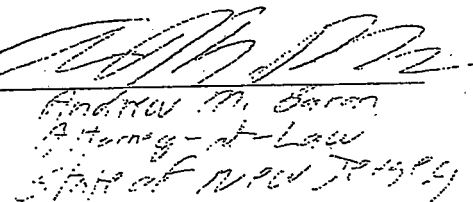 Andrew M. Baron
Attorney-at-Law
State of New Jersey